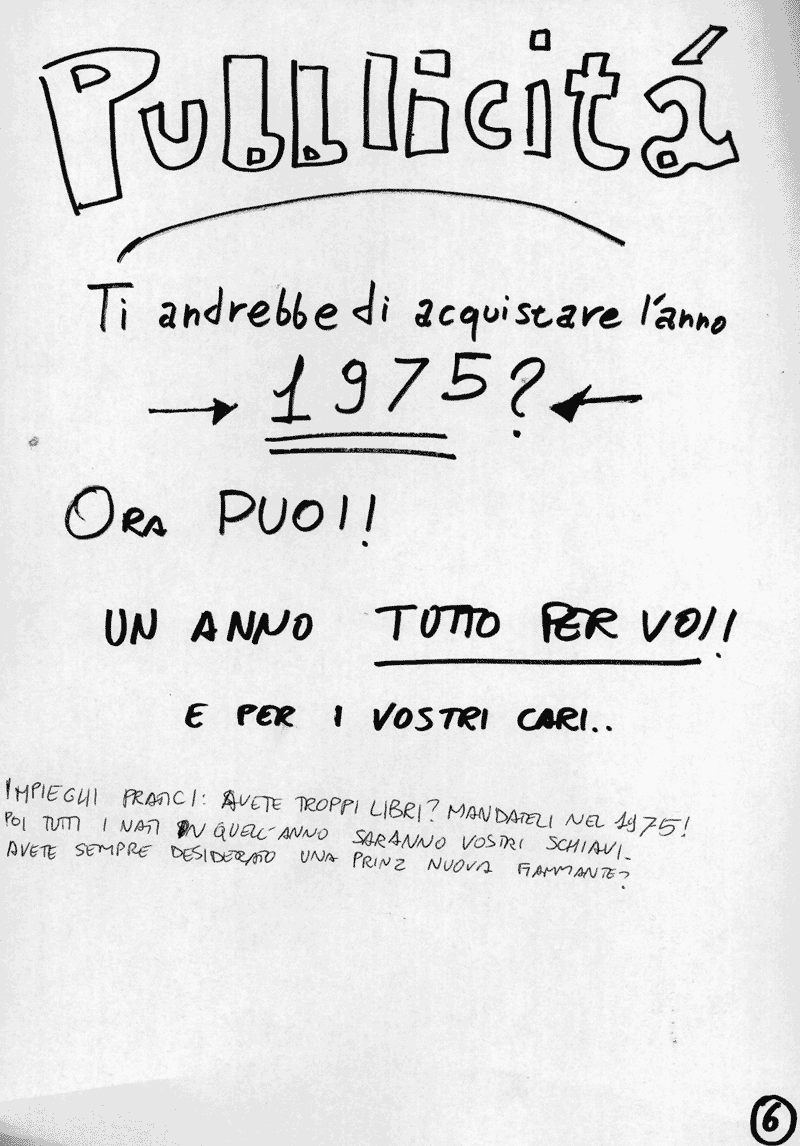 Pubblicitá
Ti andrebbe di acquistare l'anno
1975?
ORA PUOI!
UN ANNO TUTTO PER VOI!
E PER I VOSTRI CARI..
IMPIEGHI PRATICI: AVETE TROPPI LIBRI? MANDATELI NEL 1975!
POI TUTTI I NATI IN QUELL'ANNO SARANNO VOSTRI SCHIAVI.
AVETE SEMPRE DESIDERATO UNA PRINZ NUOVA FIAMMANTE?
6